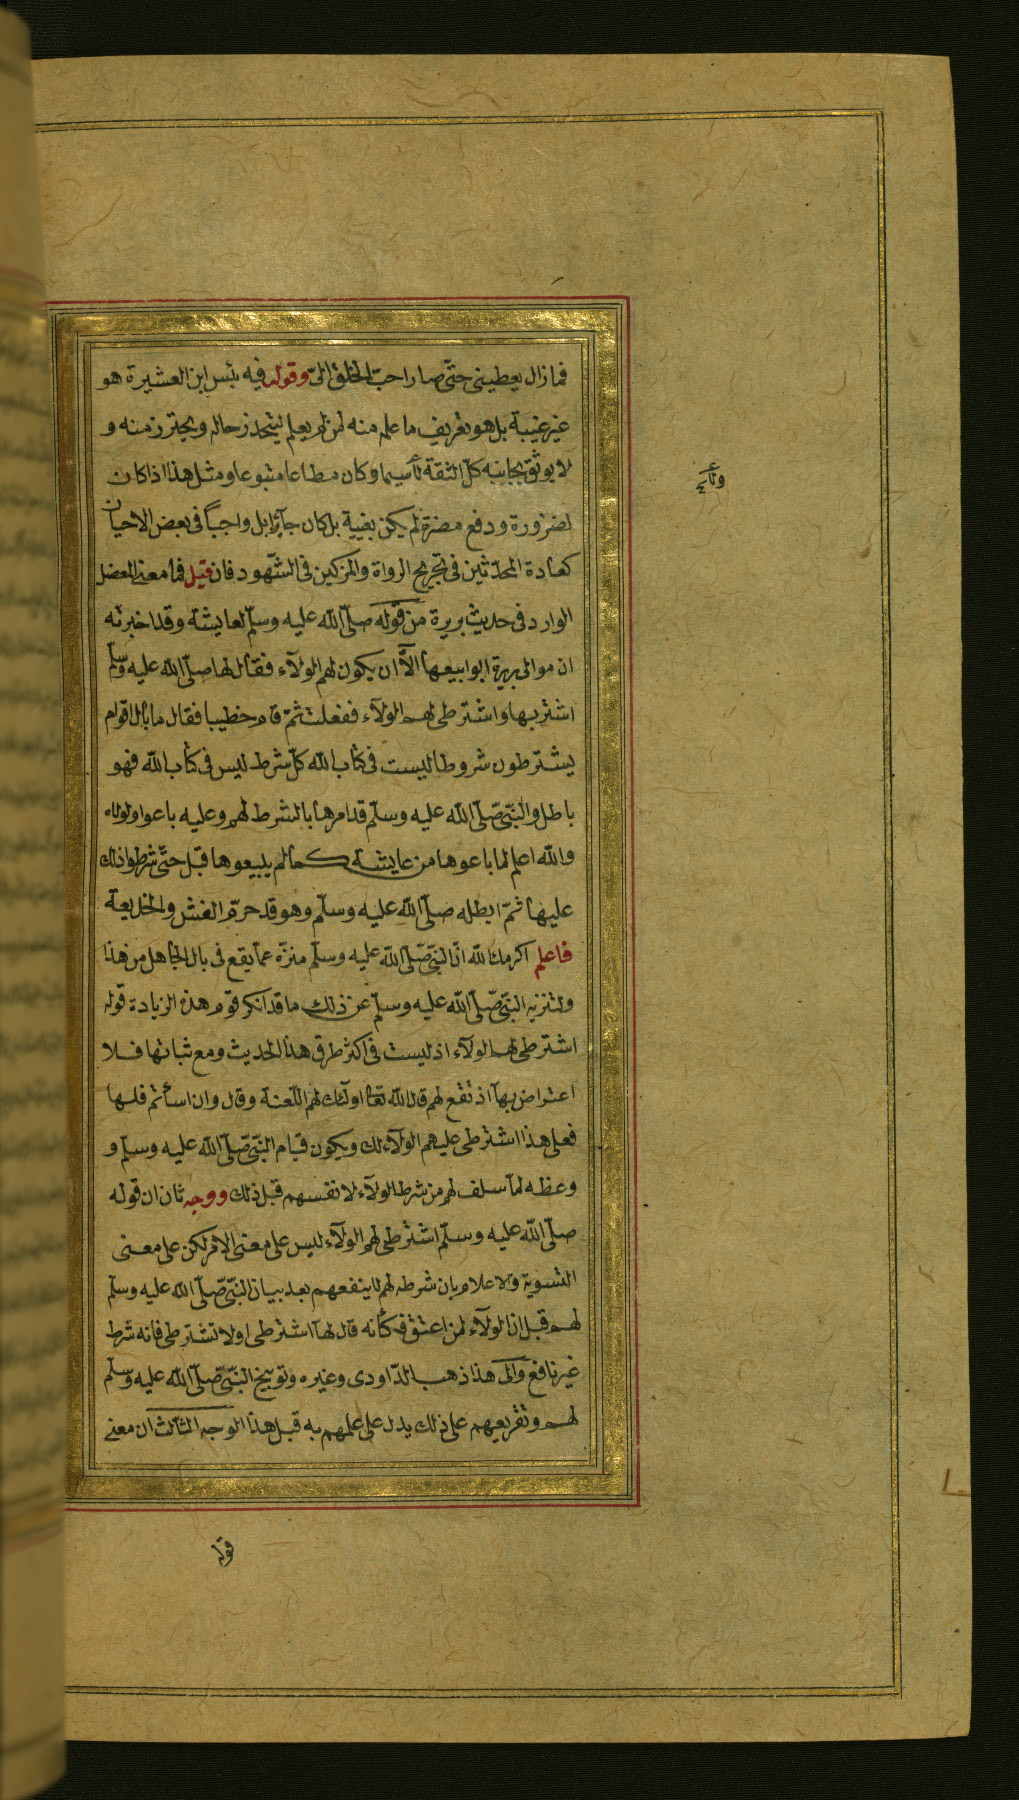 فما زال يعطينى حتّى صار احبّ الخلق الىّ وقوله فيه بئس ابن العشيرة هو
غير غيبة بل هو تعريف ما علمه منه لمن لم يعلم ليحذر حاله ويحترز منه و
لا يوثق بجانبه كلّ الثقة لا سيما وكان مطاعا متبوعا ومثل هذا اذا كان
لضرورة ودفع مضرة لم يكن بغيبة بل كان جآئزا بل واجبا فى بعض الاحيان
كعادة المحدّثين فى تجريح الرواة والمزكين فى الشّهود فان قيل فما معنى المعضل
الوارد فى حديث بريرة من قوله صلّى الله عليه وسلّم لعايشة وقد اخبرته
ان موالى بريرة ابوا بيعها الّا ان يكون لهم الولآء فقال لها صلّى الله عليه وسلّم
اشتريها واشترطى لهم الولآء ففعلت ثمّ قام خطيبا فقال ما بال اقوام
يشترطون شروطا ليست فى كتاب الله كلّ شرط ليس فى كتاب الله فهو
باطل والنّبىّ صّلى الله عليه وسلّم قد امرها بالشرط لهم وعليه باعوا ولولاه
والله اعلم لما باعوها من عايشة كما لم يبيعوها قبل حتّى شرطوا ذلك
عليها ثمّ ابطله صلّى الله عليه وسلّم وهو قد حرّم الغش والخديعة
فاعلم اكرمك الله انّ النبّى صّلى الله عليه وسلّم منزّه عمّا يقع فى بال الجاهل من هذا
ولتنزيه النبّى صّلى الله عليه وسلّم عن ذلك ما قد انكر قوم هذه الزيادة قوله
اشترطى لهم الولآء اذ ليست فى اكثر طرق هذا الحديث ومع ثباتها فلا
اعتراض بها اذ تقع لهم قال الله تعا اولئك لهم اللّعنة وقال وان اسأتم فلها
فعلى هذا اشترطى عليهم الولآء لك ويكون قيام النبّى صّلى الله عليه وسلّم و
وعظه لما سلف لهم من شرط الولآء لانفسهم قبل ذلك ووجه ثان ان قوله
صلّى الله عليه وسلّم اشترطى لهم الولآء ليس على معنى الامر لكن على معنى
التسوية والاعلام بان شرطه لهم لا ينفعهم بعد بيان النبّى صّلى الله عليه وسلّم
لهم قبل ان الولآء لمن اعتق فكأنه قال لها اشترطى او لا تشترطى فانه شرط
غير نافع والى هذا ذهب الدّاودى وغيره وتوبيخ النبّى صّلى الله عليه وسلّم
لهم وتقريعهم على ذلك يدل على علمهم به قبل هذا الوجه الثالث ان معنى
قوله